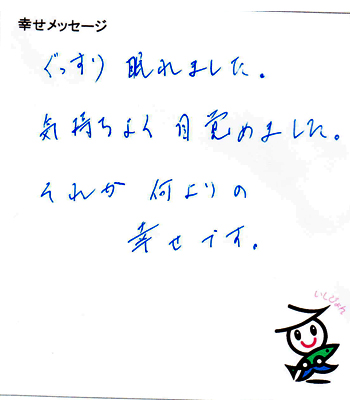 幸せメッセージ
ぐっすり 眠れました。
気持ちよく 目覚めました。
それが 何よりの
幸せです。